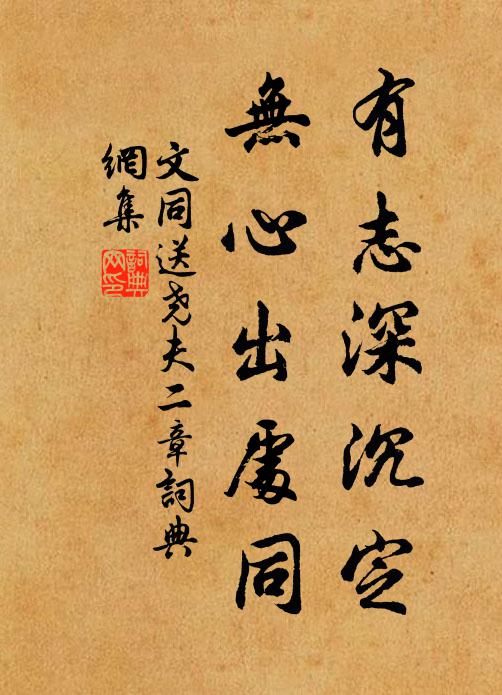 有志深沉定
無心出處同
文同送堯夫二章詞典
網集
詞典
网印